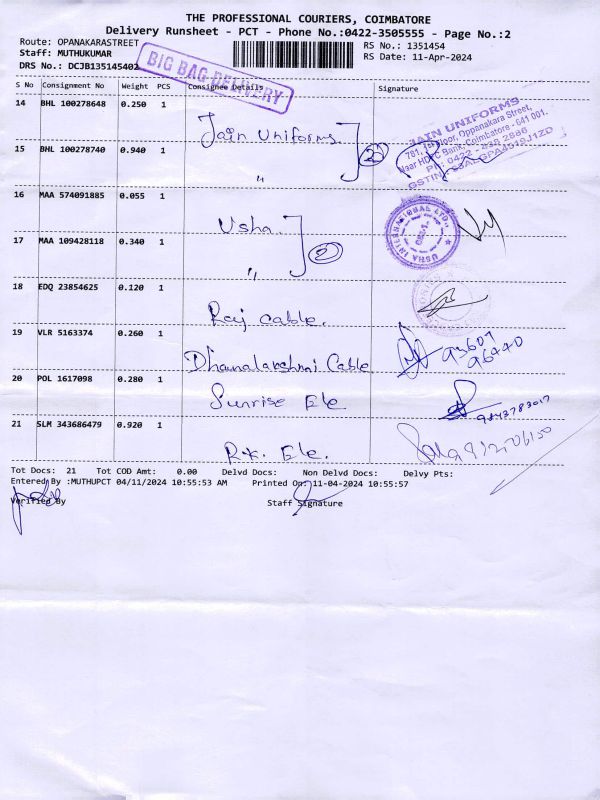 THE PROFESSIONAL COURIERS, COIMBATORE
Delivery Runsheet - PCT - Phone No.:0422-3505555 - Page No.:2
Route: OPANAKARASTREET
RS No.: 1351454
Staff: MUTHUKUMAR
RS Date: 11-Apr-2024
DRS No.: DCJB135145402
BIG BAG DELIVERY
S No Consignment No Weight PCS Consignee Details Signature
14 BHL 100278648 0.250 1 Jain Uniforms
JAIN UNIFORMS
781, 1st Floor, Oppanakara Street,
Near HDFC Bank, Coimbatore - 641 001.
15 BHL 100278740 0.940 1 "
2
16 MAA 574091885 0.055 1 Usha
USHA INTERNATIONAL LTD.
17 MAA 109428118 0.340 1 "
2
18 EDQ 23854625 0.120 1 Raj cable.
19 VLR 5163374 0.260 1 Dhanalakshmi Cable
20 POL 1617098 0.280 1 Sunrise Ele
9843783017
21 SLM 343686479 0.920 1 R.K. Ele.
Tot Docs: 21 Tot COD Amt: 0.00 Delvd Docs: Non Delvd Docs: Delvy Pts:
Entered By :MUTHUPCT 04/11/2024 10:55:53 AM Printed On: 11-04-2024 10:55:57
Verified By Staff Signature